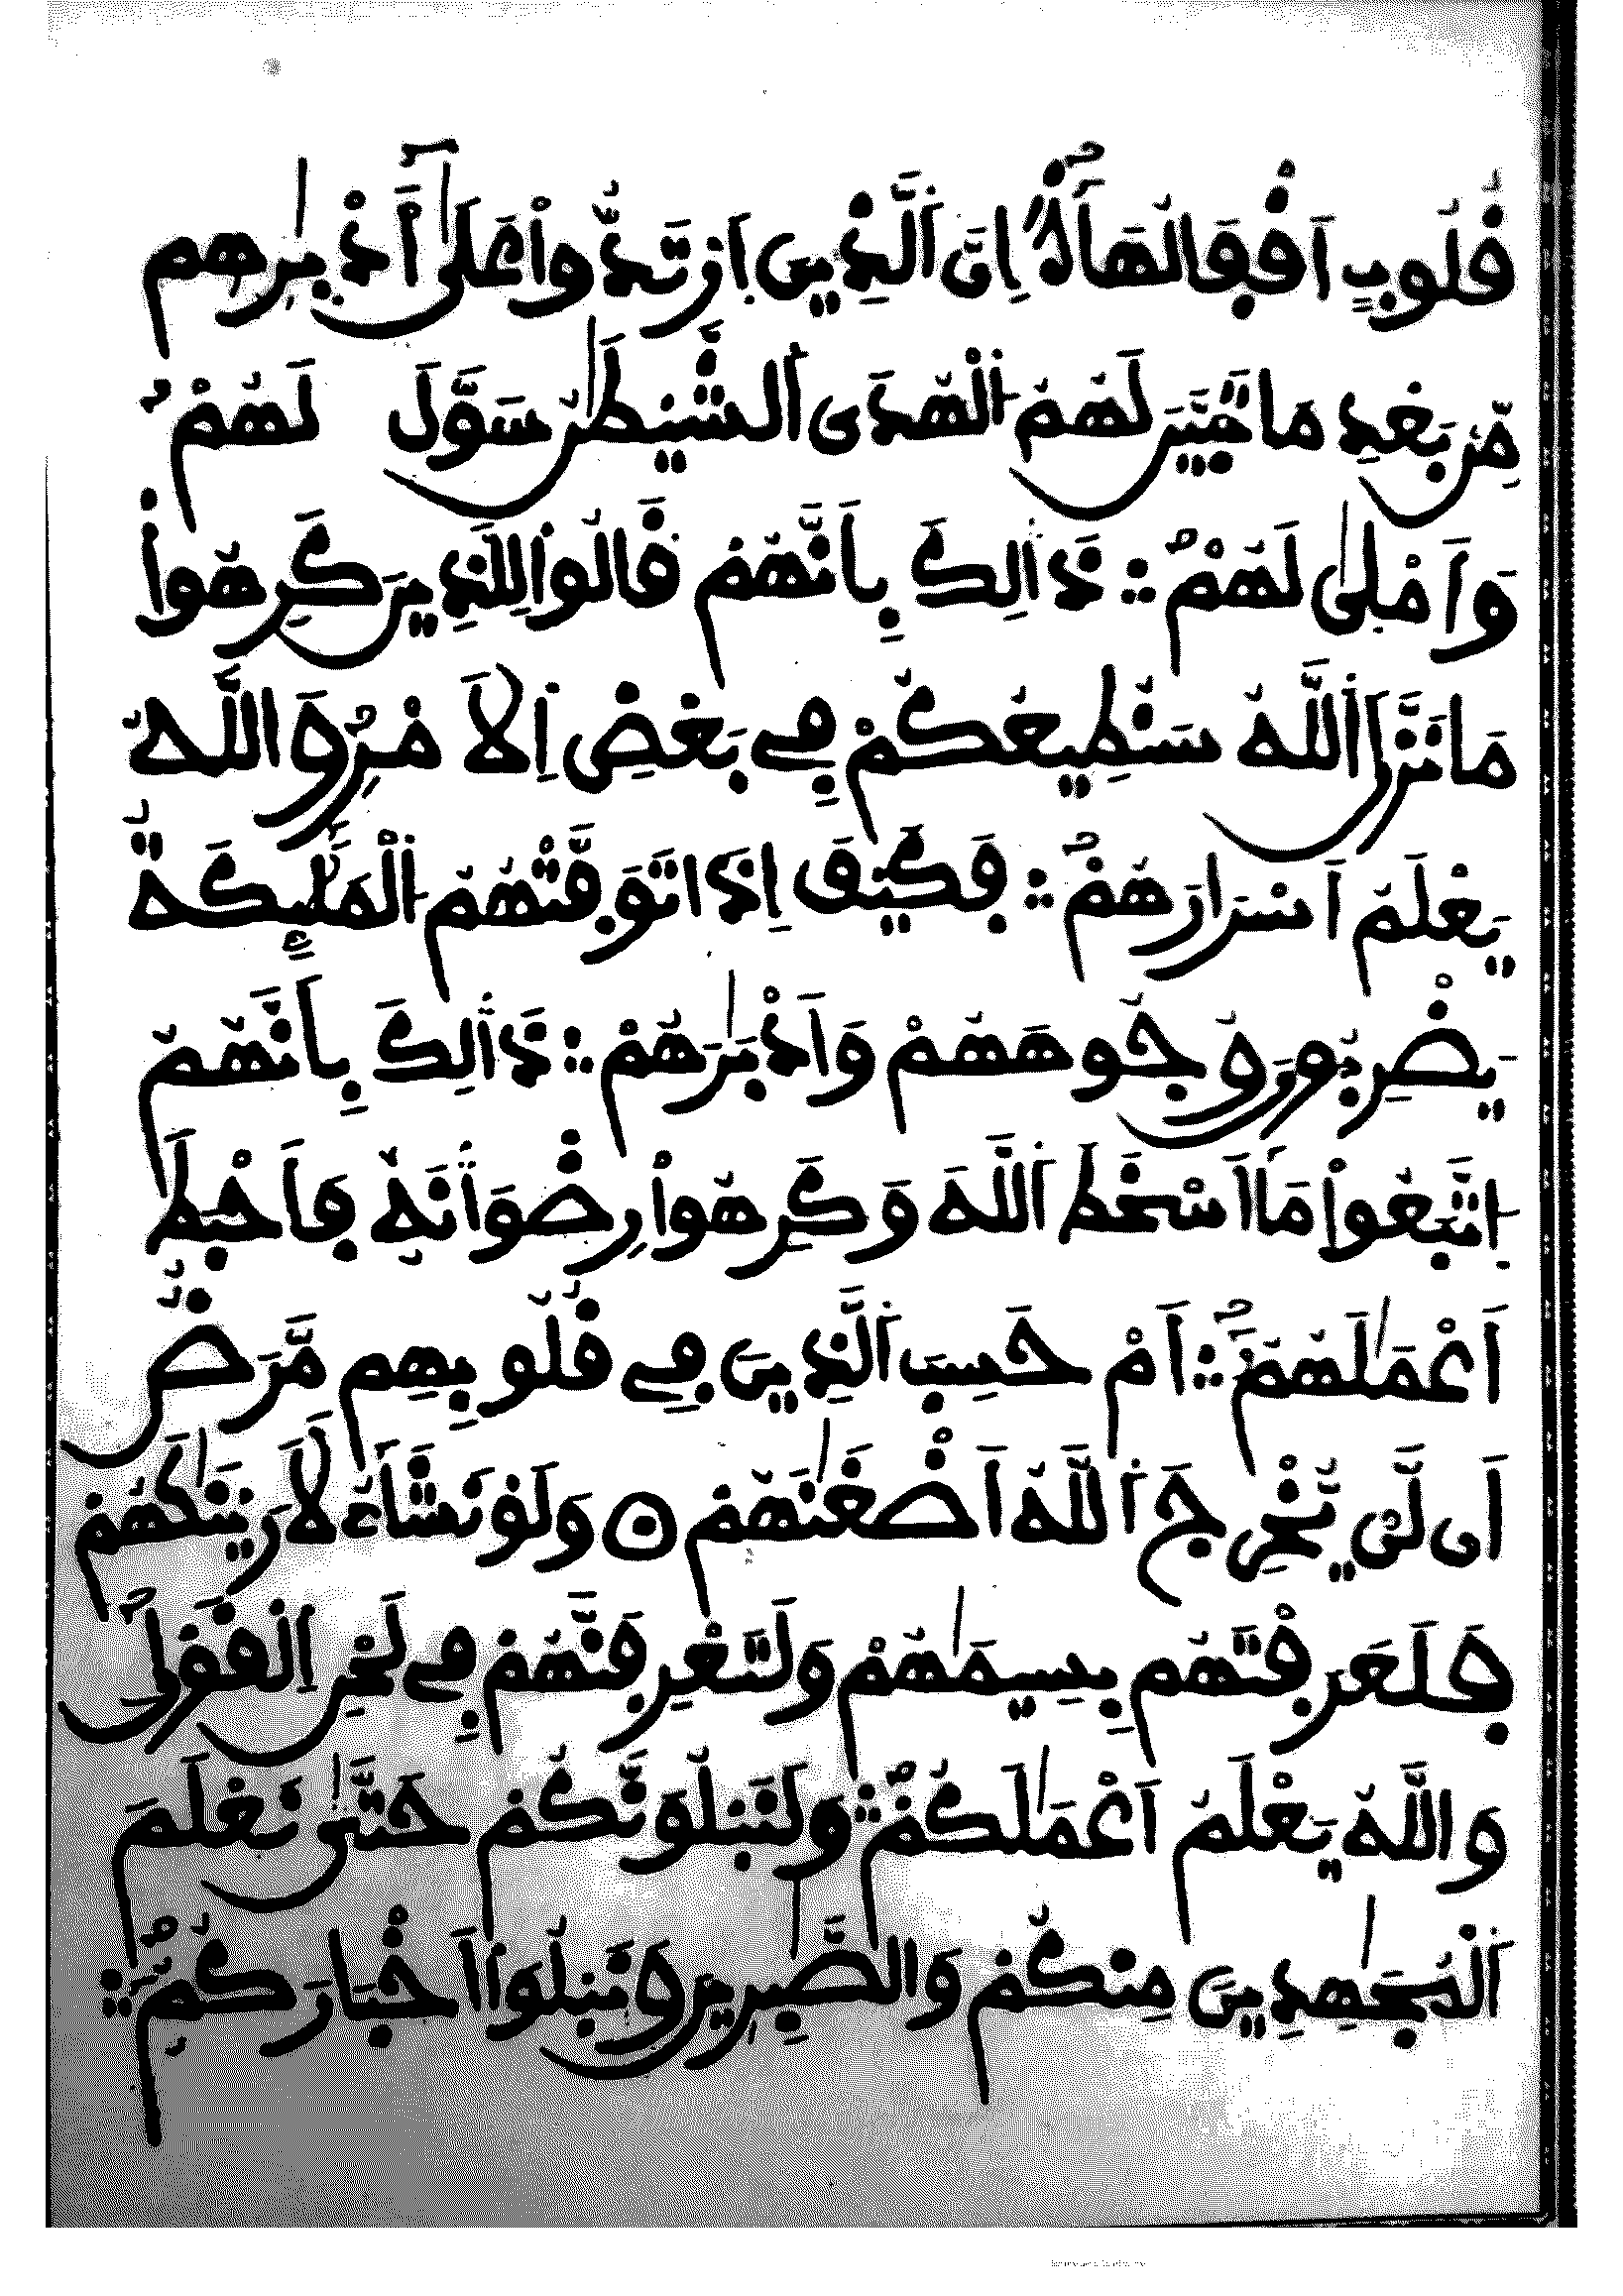 قُلُوبٍ اَقْفَالُهَآ اِنَّ اَ۬لذِينَ اَ۪رْتَدُّواْ عَلَىٰٓ أَدْبَٰرِهِم
مِّنۢ بَعْدِ مَا تَبَيَّنَ لَهُمُ اُ۬لْهُدَى اَ۬لشَّيْطَٰنُ سَوَّلَ لَهُمْ
وَأَمْلَىٰ لَهُمْ ذَٰلِكَ بِأَنَّهُمْ قَالُواْ لِلَّذِينَ كَرِهُواْ
مَا نَزَّلَ اَ۬للَّهُ سَنُطِيعُكُمْ فِے بَعْضِ اِ۬لَامْرِ وَاللَّهُ
يَعْلَمُ أَسْرَارَهُمْ فَكَيْفَ إِذَا تَوَفَّتْهُمُ اُ۬لْمَلَٰٓئِكَةُ
يَضْرِبُونَ وُجُوهَهُمْ وَأَدْبَٰرَهُمْ ذَٰلِكَ بِأَنَّهُمُ
اُ۪تَّبَعُواْ مَآ أَسْخَطَ اَ۬للَّهَ وَكَرِهُواْ رِضْوَانَهُۥ فَأَحْبَطَ
أَعْمَٰلَهُمْ أَمْ حَسِبَ اَ۬لَّذِينَ فِے قُلُوبِهِم مَّرَضٌ
أَن لَّنْ يُّخْرِجَ اَ۬للَّهُ أَضْغَٰنَهُمْ وَلَوْ نَشَآءُ لَأَرَيْنَٰكَهُمْ
فَلَعَرَفْتَهُم بِسِيمَٰهُمْ وَلَتَعْرِفَنَّهُمْ فِے لَحْنِ اِ۬لْقَوْلِ
وَاللَّهُ يَعْلَمُ أَعْمَٰلَكُمْ وَلَنَبْلُوَنَّكُمْ حَتَّىٰ نَعْلَمَ
اَ۬لْمُجَٰهِدِينَ مِنكُمْ وَالصَّٰبِرِينَ وَنَبْلُوَاْ أَخْبَارَكُمْ